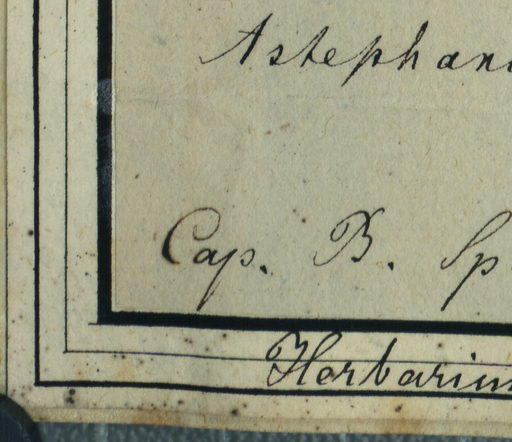 Astephan
Cap. B. Sp
Herbarium